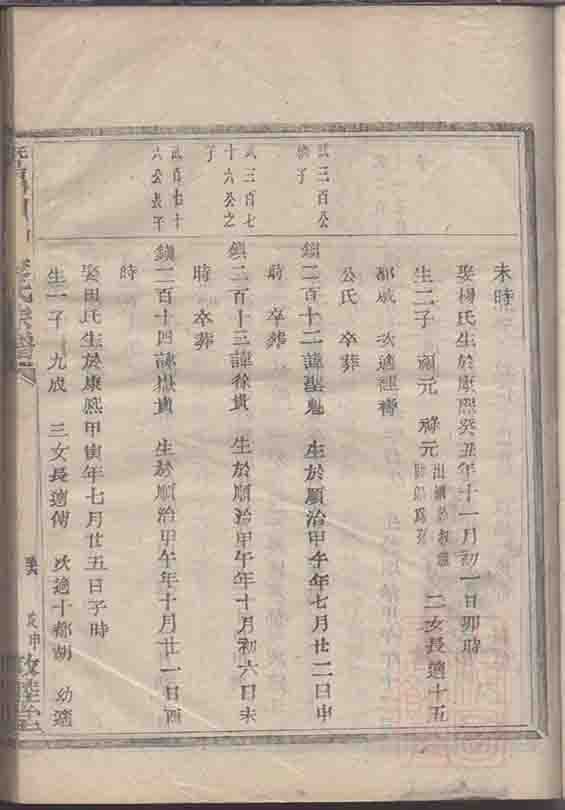 未時
娶楊氏生於康熙癸丑年十一月初一日卯時
生二子 元 祿元 出 二女長適十五
都成 次適
公氏 卒葬
武三百公
子
鎮二百十二諱聖魁 生於順治甲午年七月廿二日申
時 卒葬
武三百七
十六公之
子
鎮二百十三諱徐貴 生於順治甲午年十月初六日未
時 卒葬
武百七十
六公長子
鎮二百十四諱嶽貴 生於順治甲午年十月廿一日酉
時
娶田氏生於康熙甲寅年七月廿五日子時
生一子 九成 三女長適傅 次適十都胡 幼適
氏宗譜
甲
敦睦堂